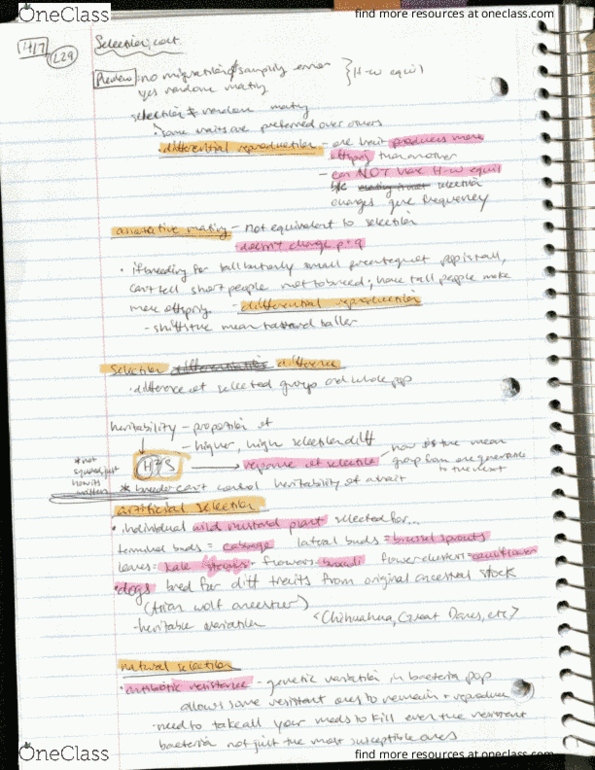 OneClass
find more resources at oneclass.com
4/7
L29
Selection, cont
Preview: no migration, sampling error } H-W equil
yes random mating
selection ≠ random mating
• some traits are preferred over others
differential reproduction - one trait produces more
offspring than another
- can NOT have H-W equil
b/c selection
changes gene frequency
assortative mating - not equivalent to selection
doesn't change p + q
• if breeding for tall but only small percentage of pop is tall,
can't tell short people not to breed; have tall people make
more offspring - differential reproduction
- shifts the mean toward taller
selection difference
• difference of selected group and whole pop
heritability - proportion of
- higher, high selection diff
* not squared, just how it's written
H²S → response of selection
how the mean
group from one generation
to the next
* breeder can't control heritability of a trait
artificial selection
• individual wild mustard plant selected for...
terminal buds = cabbage lateral buds = brussel sprouts
leaves = kale stems + flowers = broccoli flower clusters = cauliflower
• dogs bred for diff traits from original ancestral stock
(from wolf ancestor)
- heritable variation <Chihuahua, Great Danes, etc>
natural selection
• antibiotic resistance - genetic variation in bacteria pop
allows some resistant ones to remain + reproduce
• need to take all your meds to kill even the resistant
bacteria not just the most susceptible ones
OneClass
find more resources at oneclass.com